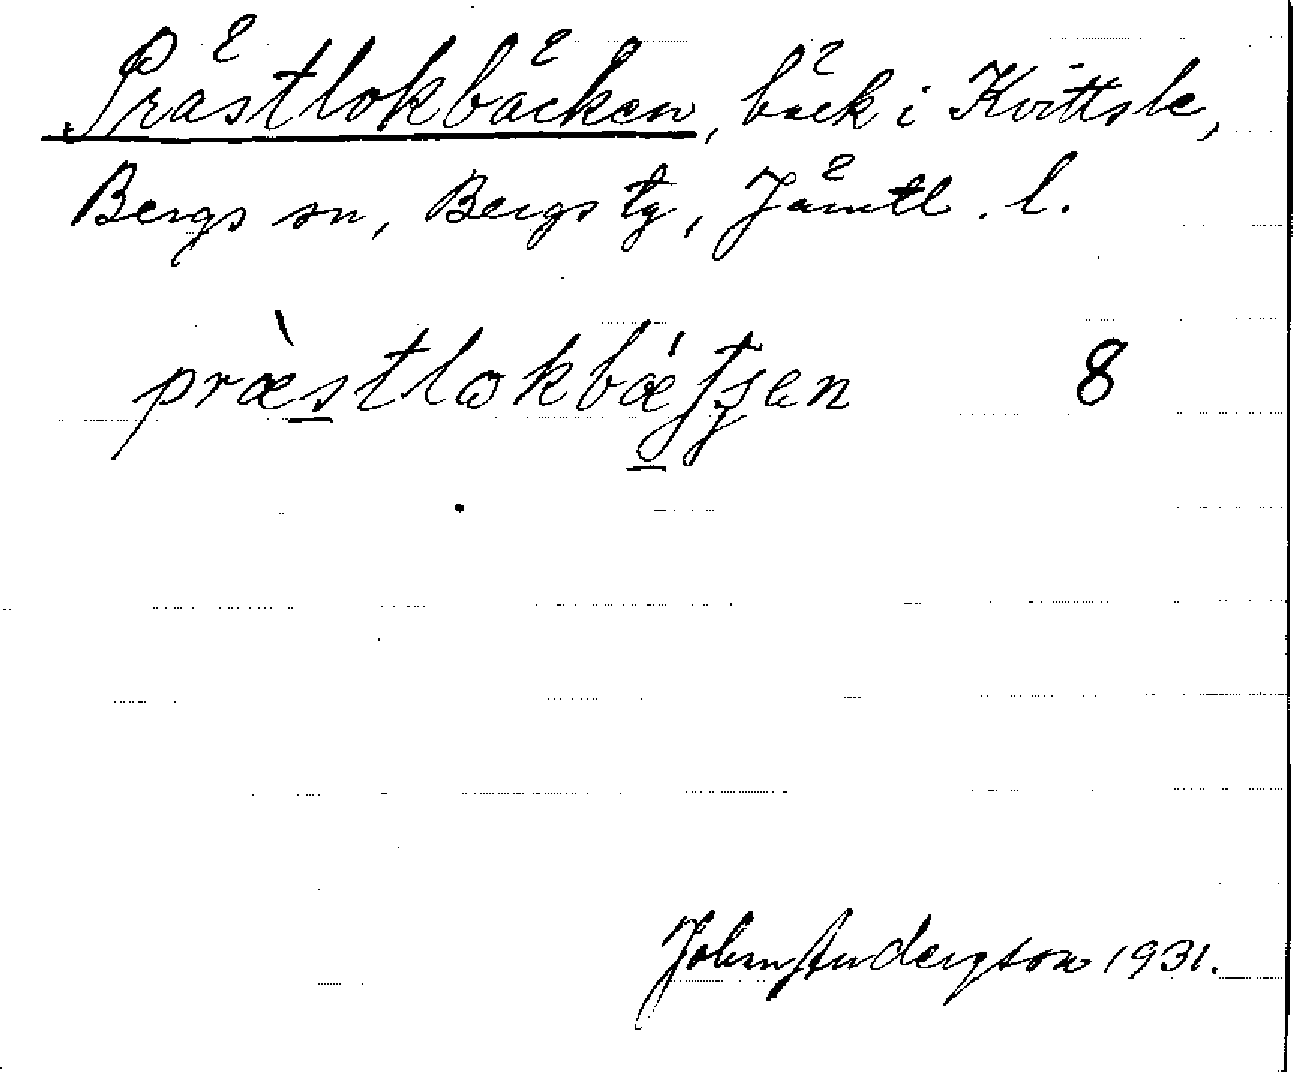 Prästlokbäcken, bäck i Kvittsle,
Bergs sn, Bergs tg, Jämtl. l.
præ̀stlokbǽʃtʂen 8
John Anderzson 1931.